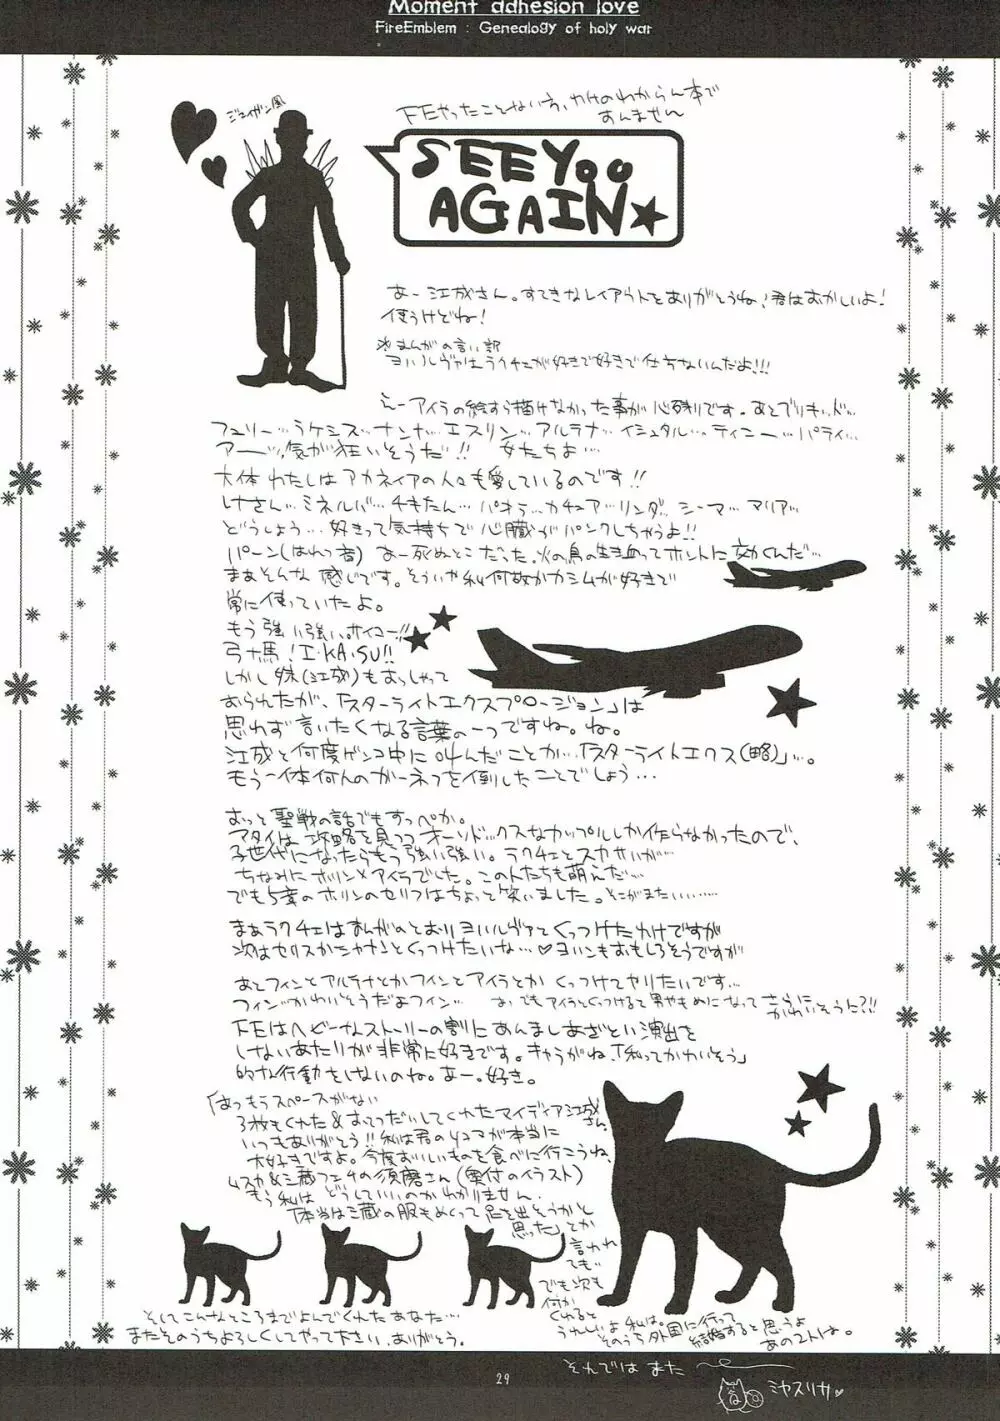 Moment adhesion love
FireEmblem : Genealogy of holy war
ジェイガン風
FEやったことない方、わけのわからん本で
すんません
SEE YOU
AGAIN★
あー江成さん。すてきなレイアウトをありがとうね！君はおかしいよ！
使うけどね！
※まんがの言い訳
ヨハルヴァはラクチェが好きで好きで仕方ないんだよ!!!
えーアイラの絵すら描けなかった事が心残りです。あとブリギッド…
フュリー…ラケシス…ナンナ…エスリン…アルテナ…イシュタル…ティニー…パティ…
アー…気が狂いそうだ!! 女たちよ…
大体わたしはアカネイアの人々も愛しているのです!!
しーださん…ミネルバ…チキたん…パオラ…カチュア…リンダ…シーマ…マリア…
どうしよう…好きって気持ちで心臓がパンクしちゃうよ!!
パーン(はれつ音) あー死ぬとこだった。火の鳥の生き血ってホントに効くんだ…
まあそんな感じです。そういや私何故かカシムが好きで
常に使っていたよ。
もう強い強い。ホイコー!!
弓+馬！I・KA・SU!!
しかし妹(江成)もおっしゃって
おられたが、「スターライトエクスプロージョン」は
思わず言いたくなる言葉の一つですね。ね。
江成と何度ゲンコ中に叫んだことか…「スターライトエクス(略)」…。
もう一体何人のガーネフを倒したことでしょう…
おっと聖戦の話でもすっぺか。
アタイは攻略を見つつオーソドックスなカップルしか作らなかったので、
子世代になったらもう強い強い。ラクチェとスカサハが…
ちなみにホリン×アイラでした。この人たちも萌えだ…
でも5章のホリンのセリフはちょっと笑いました。そこがまたいい……
まあラクチェはまんがのとおりヨハルヴァとくっつけたわけですが
次はセリスかシャナンとくっつけたいな…♡ヨハンもおもしろそうですが
あとフィンとアルテナとかフィンとアイラとかくっつけてヤリたいです…
フィン…かわいそうだよフィン… あ、でもアイラとくっつけると男やもめになってさらにかわいそうに?!!
FEはヘビーなストーリーの割にあんましあざとい演出を
しないあたりが非常に好きです。キャラがね、「私ってかわいそう」
的な行動をしないのね。あー。好き。
「はっもうスペースがない
3枚もくれた＆おてつだいしてくれたマイディア江成さん
いつもありがとう!!私は君の4コマが本当に
大好きですよ。今度おいしいものを食べに行こうね、
ムスカ＆三蔵フェチの須磨さん(奥付のイラスト)
もう私はどうしていいのかわかりません。
「本当は三蔵の服もめくって足を出そうかと
思った」とか
言われ
ても…
でも次も
何か
くれると
うれしいよ私は。
そのうち外国に行って
結婚すると思うよ
あの2人は。
そしてこんなところまでよんでくれたあなた…
またそのうちよろしくしてやって下さい。ありがとう。
それでは また
ミヤスリサ♡
29